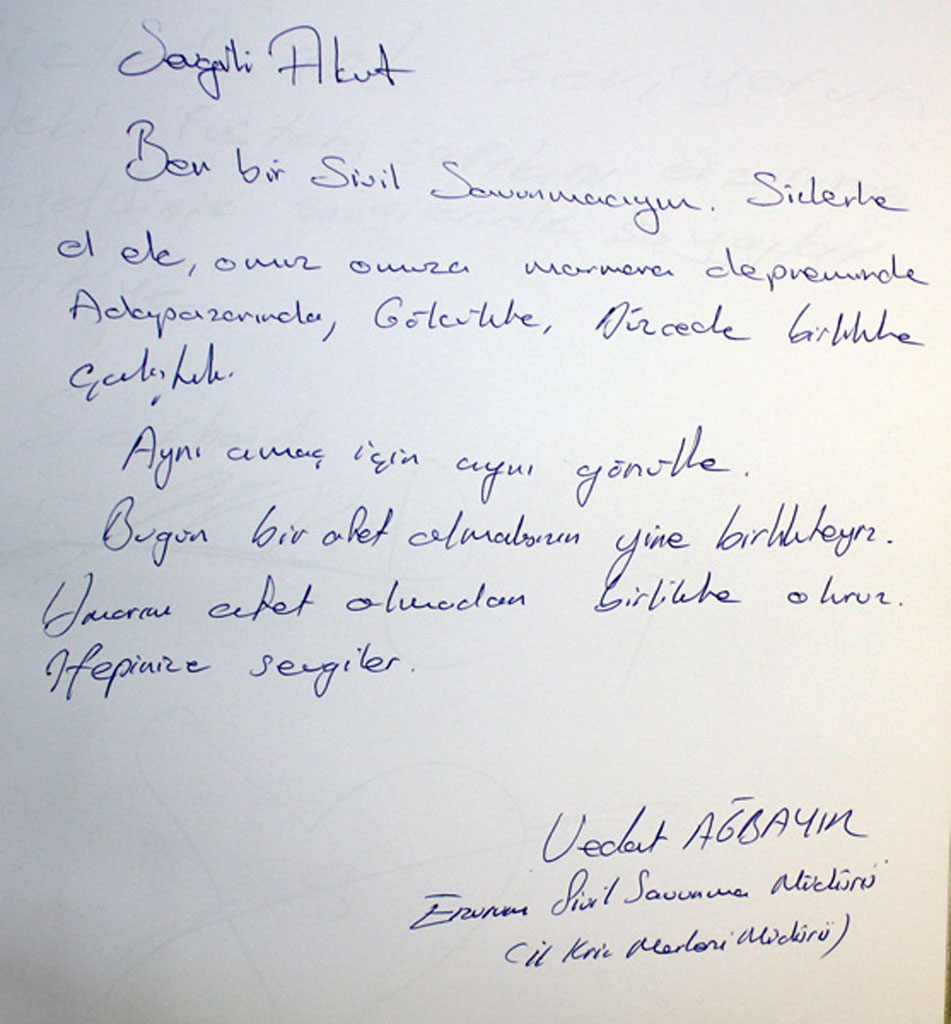 Sevgili Akut
Ben bir Sivil Savunmacıyım. Sizlerle
el ele, omuz omuza marmara depreminde
Adapazarında, Gölcükte, Düzcede birlikte
çalıştık.
Aynı amaç için aynı gönülle.
Bugün bir afet olmaksızın yine birlikteyiz.
Umarım afet olmadan birlikte oluruz.
Hepinize sevgiler.
Vedat AĞBAYIR
Erzurum Sivil Savunma Müdürü
(İl Kriz Merkezi Müdürü)